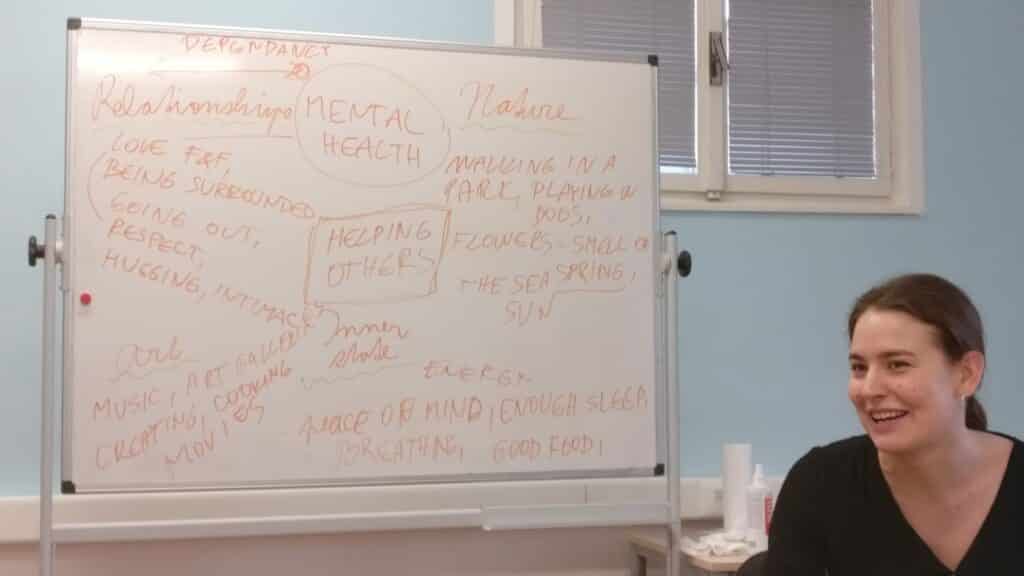 DEPENDANCY
Relationships
MENTAL
HEALTH
Nature
LOVE F&F,
BEING SURROUNDED
GOING OUT,
RESPECT,
HUGGING, INTIMACY
HELPING
OTHERS
WALKING IN A
PARK, PLAYING W
DOGS,
FLOWERS - SMELL OF
THE SEA SPRING,
SUN
Art
MUSIC, ART GALLERIES
CREATING, COOKING
MOVIES
Inner
state
ENERGY
PEACE OF MIND, ENOUGH SLEEP
BREATHING, GOOD FOOD,